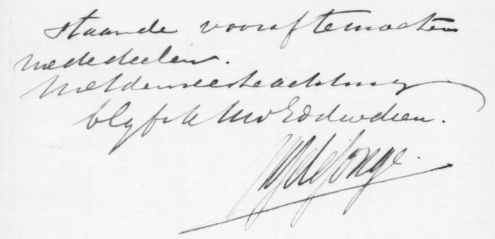 staande vooraf te mogten
mededeelen.
Met de meeste achting
blyf ik Uw Ed dw dien.
de Jonge.